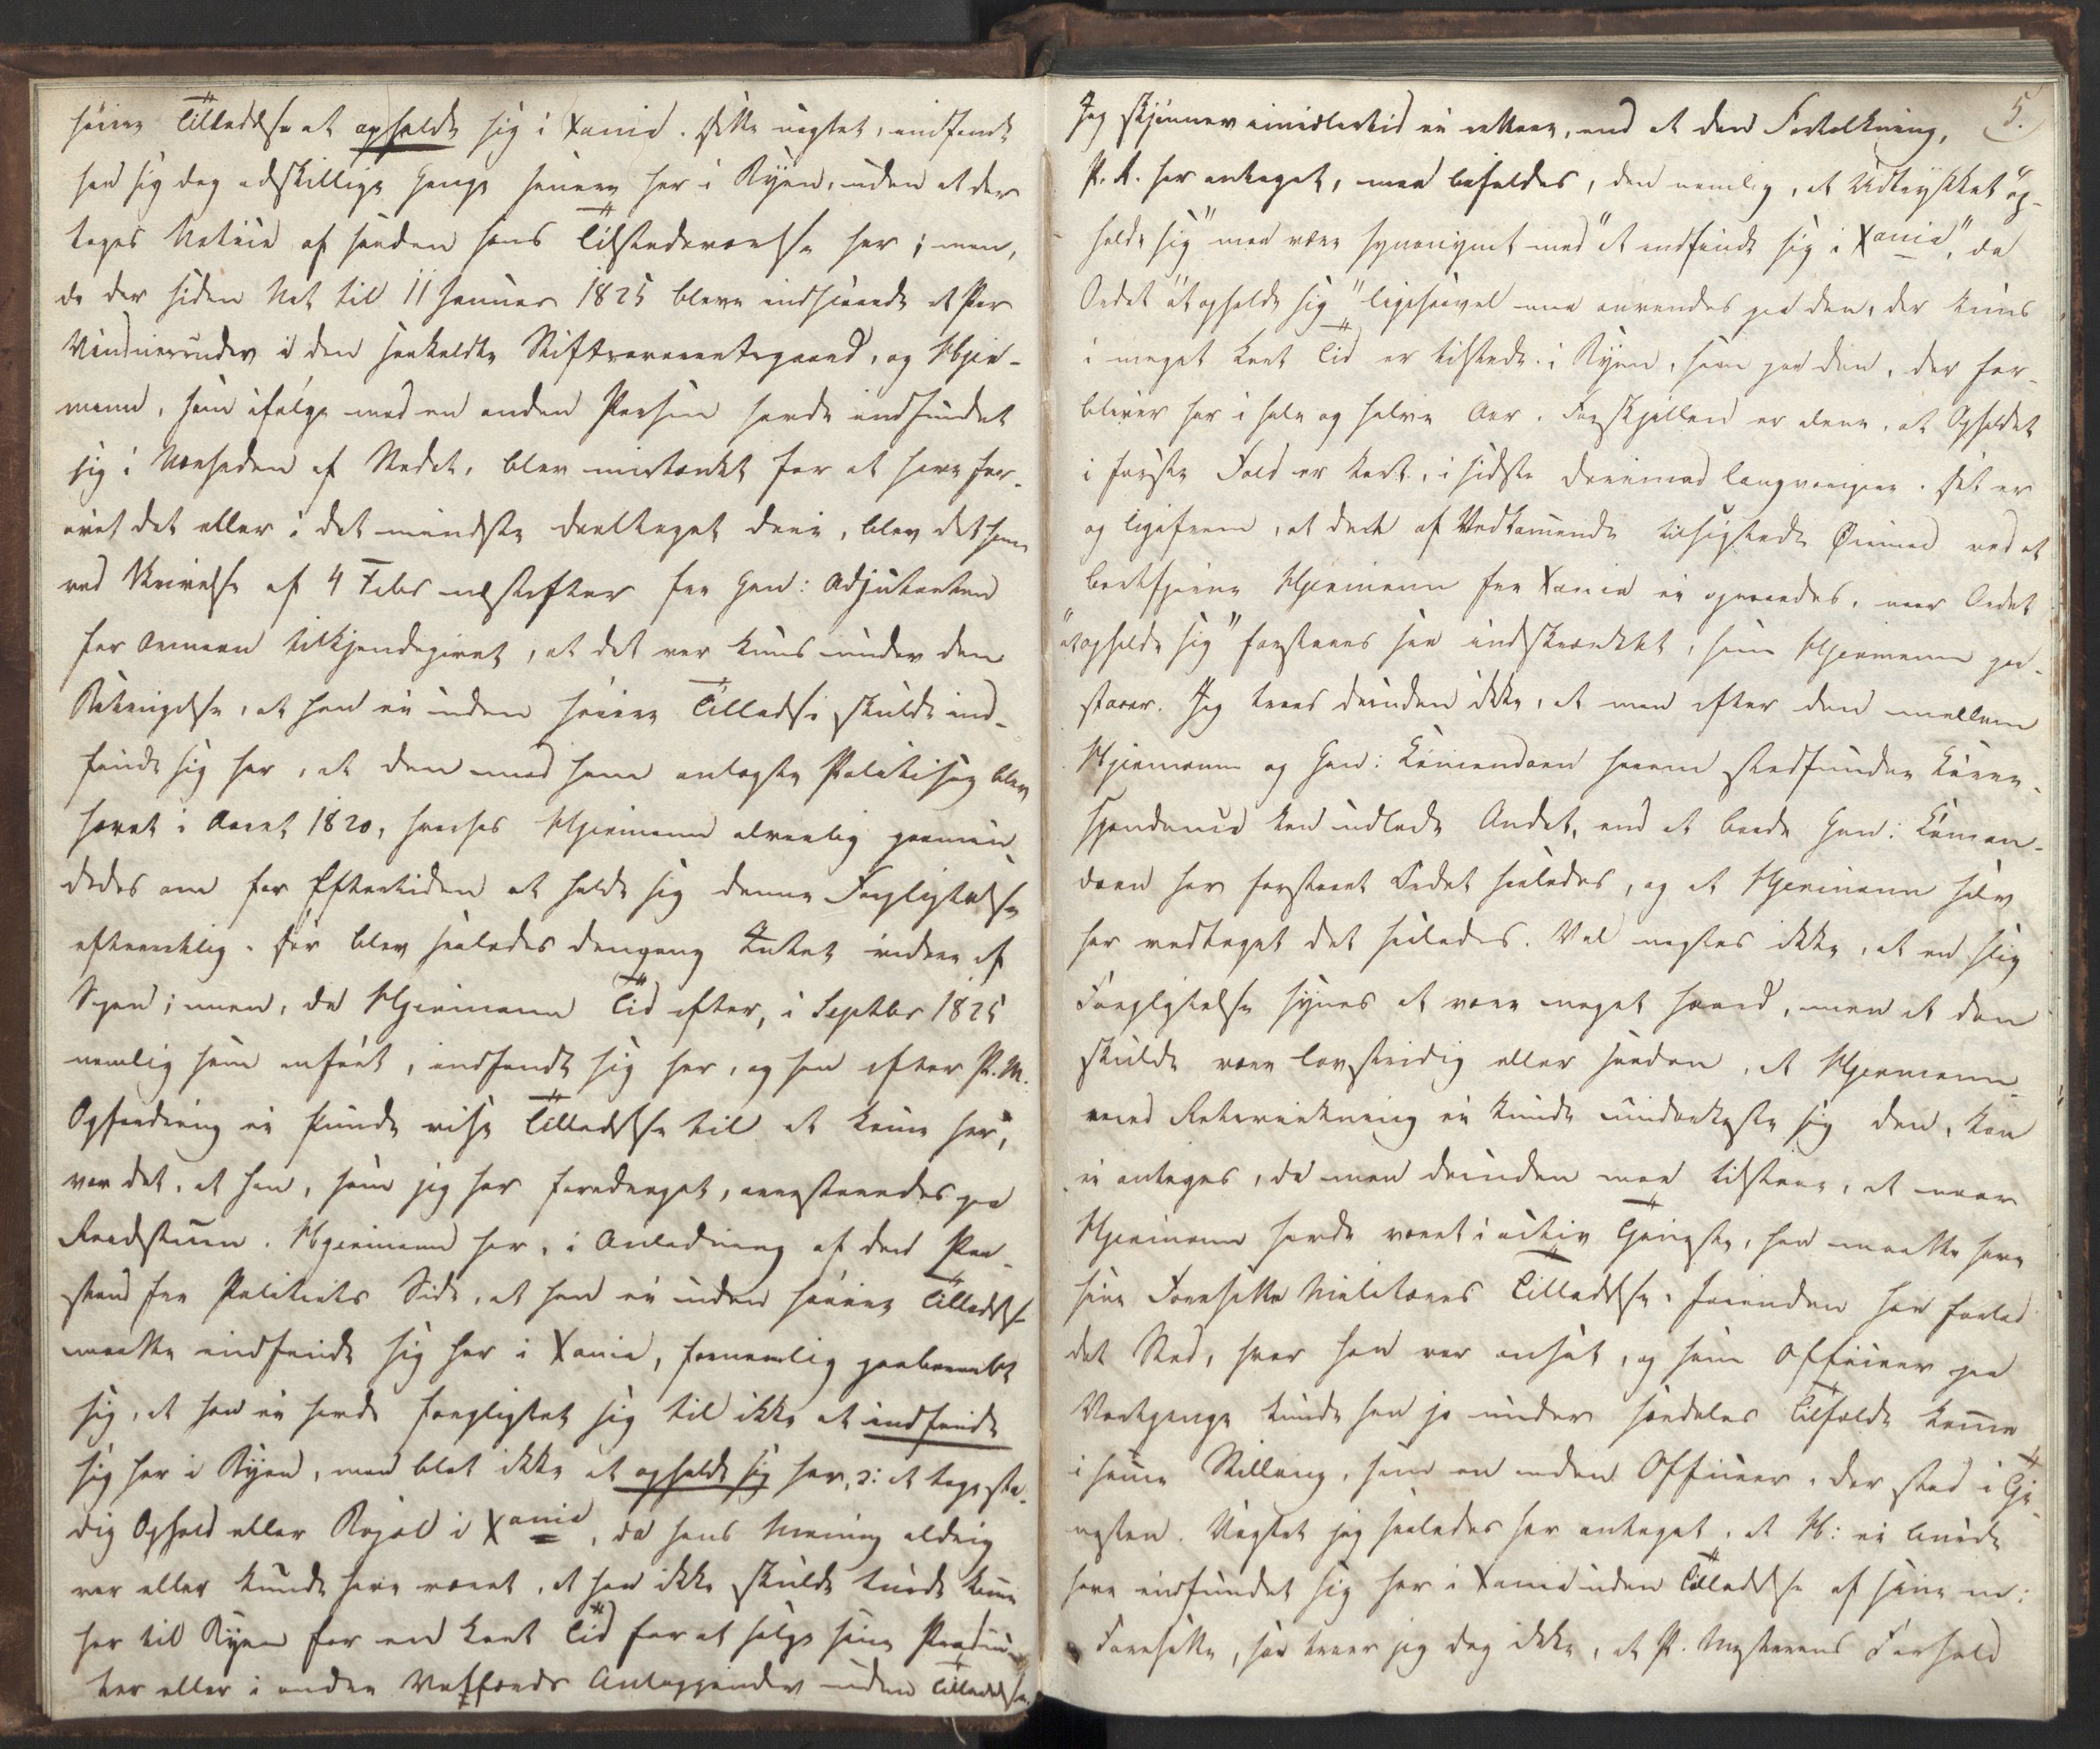 høiere Tilladelse at opholde sig i Xania. Dette uagtet, indfandt
han sig dog adskillige Gange senere her i Byen, uden at der
toges Notice af saadan hans Tilstedeværelse her; men,
da der siden Nat til 11 Januar 1825 bleve indslaaede et Par
Vinduesruder i den saakaldte Stiftsarrestgaard, og Hjer-
mann, som ifølge med en anden Person havde indfundet
sig i Nærheden af Stedet, blev mistænkt for at have for-
øvet det eller i det mindste deeltaget deri, blev det ham
ved Skrivelse af 4 Febr næstefter fra Gen: Adjutanten
for Armeen tilkjendegivet, at det var kuns under den
Betingelse, at han ei uden høiere Tilladelse skulde ind-
finde sig her, at den mod ham anlagte Politisag blev
hævet i Aaret 1820, hvorhos Hjermann alvorlig paamin-
dedes om for Eftertiden at holde sig denne Forpligtelse
efterrettelig. Der blev saaledes dengang Intet videre af
Sagen; men, da Hjermann Tid efter, i Septbr 1825
nemlig som anført, indfandt sig her, og han efter P.M.
Opfordring ei kunde vise Tilladelse til at komme her,
var det, at han, som jeg har foredraget, arresteredes paa
Raadstuen. Hjermann har, i Anledning af den Paa-
stand fra Politiets Side, at han ei uden høiere Tilladelse
maatte indfinde sig her i Xania, fornemlig paaberaabt
sig, at han ei havde forpligtet sig til ikke at indfinde
sig her i Byen, men blot ikke at opholde sig her, ɔ: at tage sta-
dig Ophold eller Bopæl i Xania, da hans Mening aldrig
var eller kunde have været, at han ikke skulde turde komme
her til Byen for en kort Tid for at sælge sine Produc-
ter eller i anden Velfærds Anliggender uden Tilladelse.
5.
Jeg skjønner imidlertid ei rettere, end at den Fortolkning,
P. A. har antaget, maa befoldes, den nemlig, at Udtrykket "op-
holde sig" maa være synonymt med "at indfinde sig i Xania", da
Ordet "at opholde sig" ligesaavel maa anvendes paa den, der kuns
i meget kort Tid er tilstede i Byen, som paa den, der for-
bliver her i hele og halve Aar. Forskjellen er alene, at Opholdet
i første Fald er kort, i sidste derimod langvarigere. Det er
og ligefrem, at dette af Vedkommende tilsigtede Øiemed ved at
bortfjerne Hjermann fra Xania ei opnaaedes, naar Ordet
"at opholde sig" forstaaes saa indskrænket, som Hjermann paa-
staaer. Jeg troer desuden ikke, at man efter den mellem
Hjermann og Gen: Commandoen herom stedfundne Corre-
spondance kan udlede Andet, end at baade Gen: Comman-
doen har forstaaet Ordet saaledes, og at Hjermann selv
har vedtaget det saaledes. Vel nægtes ikke, at en slig
Forpligtelse synes at være meget haard, men at den
skulde være lovstridig eller saadan, at Hjermann
med Retsvirkning ei kunde underkaste sig den, kan
ei antages, da man desuden maa tilstaae, at naar
Hjermann havde været i activ Tjeneste, han maatte have
sine Foresatte Militæres Tilladelse, forinden han forlod
det Sted, hvor han var ansat, og som Officier paa
Vartpenge kunde han jo under saadanne Tilfælde komme
i samme Stilling, som en anden Officeer, der stod i Tje-
nesten. Uagtet jeg saaledes har antaget, at H: ei burde
have indfundet sig her i Xania uden Tilladelse af sine m:
Foresatte, saa troer jeg dog ikke, at P. Mesterens Forhold